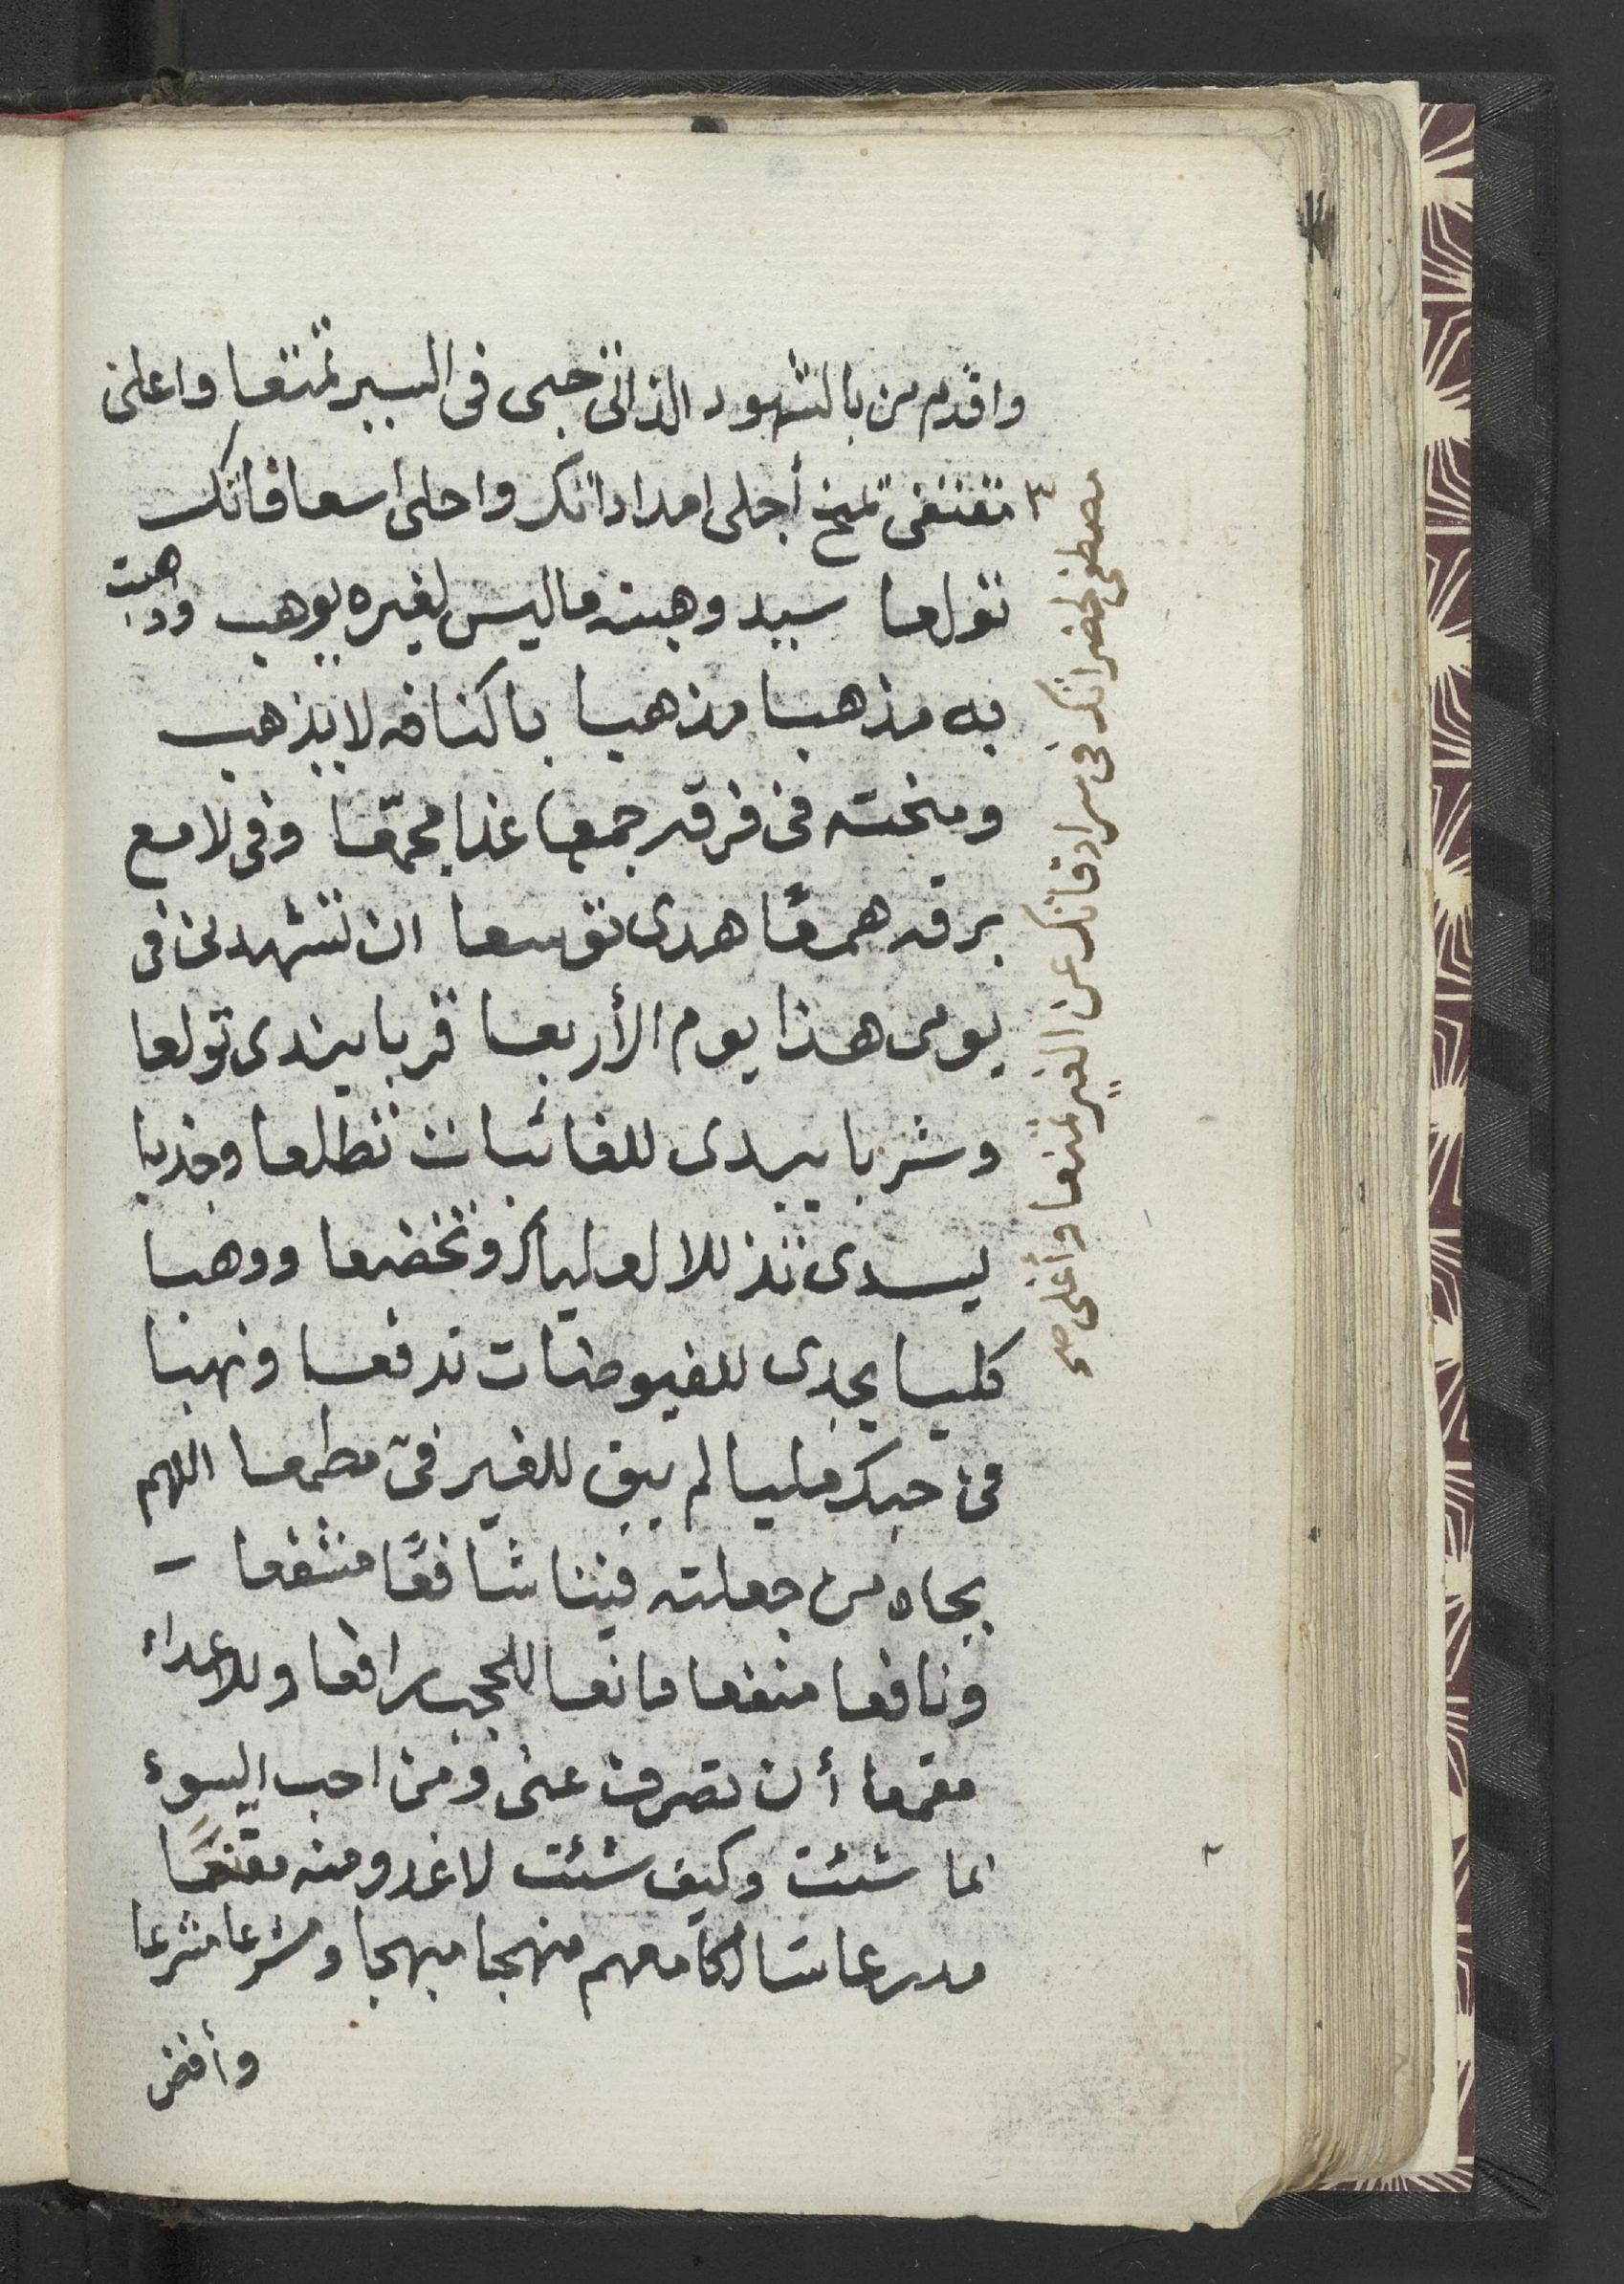 واقدم من بالشهود الذاتى حبى فى السير تمتعا واعلى
مقتفى تمنح أجلى امداداتك واحلى اسعافاتك
تولعا سيد وهبته ما ليس لغيره يوهب وذهبت
به مذهبا مذهبا باكنافه لا يذهب
ومنحته فى فرقه جمعا غذا مجمّعا وفى لامع
برقه همعًا هدى توسعا ان تشهدنى فى
يومى هذا يوم الأربعا قربا يندى تولعا
وشربا يبدى للغائبات تطلعا وجذبا
يسدى تذللا لعلياك وتخضعا ووهبا
كليا يجدى للفيوضات تدفعا ونهبا
فى حبك مليا لم يبق للغير فىّ مطمعا اللهم
بجاه من جعلته فينا شافعًا مشفعا
ونافعا منفعا مانعا للحجب رافعا وللاعداء
مقمعا أن تصرف عنى ومن احب السوء
بما شئت وكيف شئت لاغدو منه مقنعًا
مدرعا سالكا معهم منهجا مبهجا ومشرعا مشرعا
وأفض
مصطفى لحضراتك فى سرادقاتك عن الغير تمنعا وأغلى صح